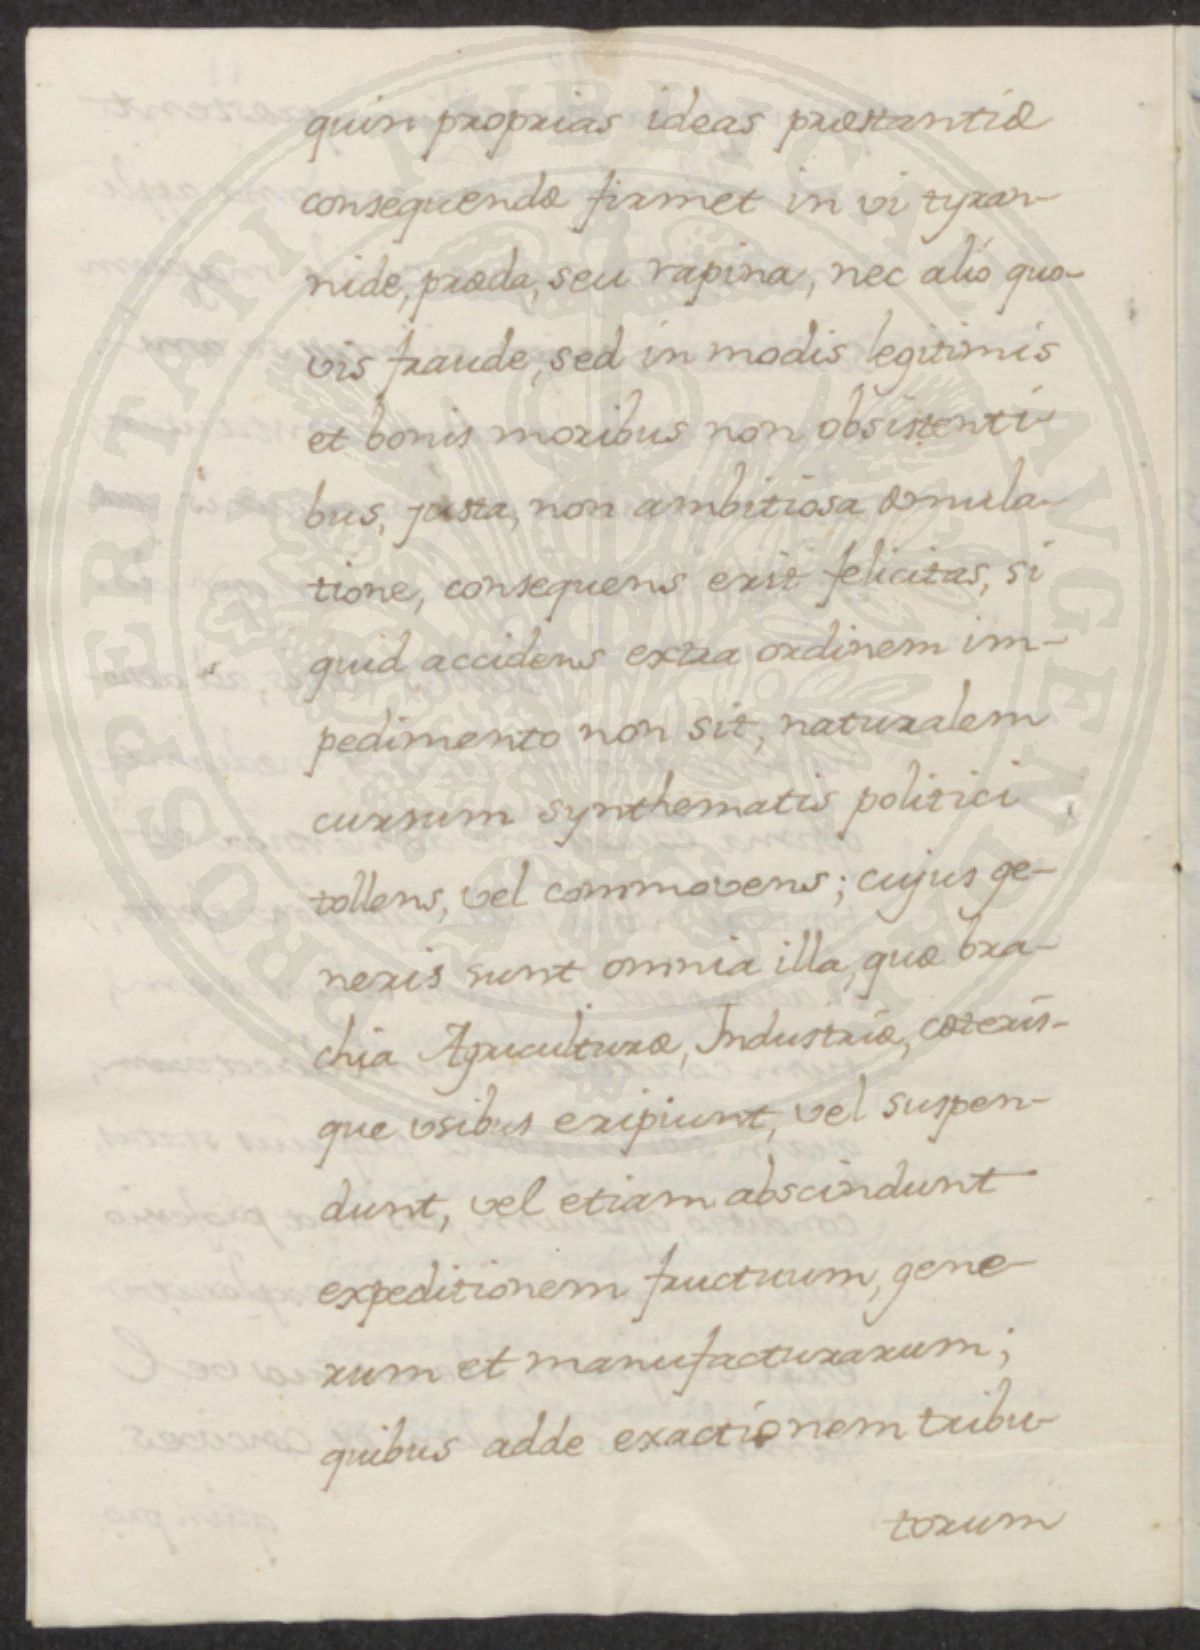 quin proprias ideas præstantiæ
consequendæ firmet in vi tyran-
nide, præda, seu rapina, nec alio quo-
vis fraude, sed in modis legitimis
et bonis moribus non obsistenti-
bus, justa, non ambitiosa æmula-
tione, consequens erit felicitas, si
quid accidens extra ordinem im-
pedimento non sit, naturalem
cursum synthematis politici
tollens, vel commovens; cujus ge-
neris sunt omnia illa, quæ bra-
chia Agriculturæ, Industriæ, cæteris-
que usibus eripiunt, vel suspen-
dunt, vel etiam abscindunt
expeditionem fructuum, gene-
rum et manufacturarum;
quibus adde exactionem tribu-
torum
PROSPERITATI PUBLICÆ AUGENDÆ